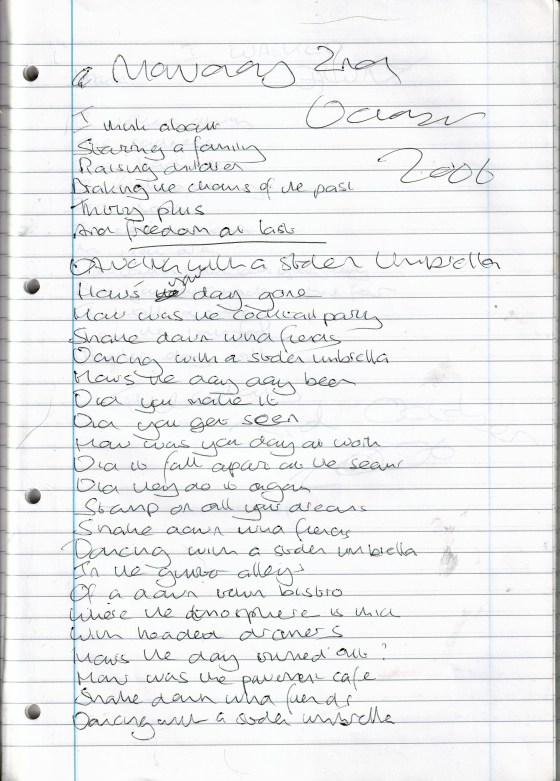 Monday 2nd
October
2006
I think about
Starting a family
Raising children
Braking the chains of the past
Thirty plus
And freedom at last
Dancing with a stolen Umbrella
How's your day gone
How was the cocktail party
Shake down wha friends
Dancing with a stolen umbrella
How's the day day been
Did you make it
Did you get seen
How was you day at work
Did it fall apart at the seams
Did they do it again
Stamp on all your dreams
Shake down wha friends
Dancing with a stolen umbrella
In the alleys
Of a down town bistro
Where the atmosphere is thick
With headed
How's the day turned out?
How was the pavement cafe
Shake down wha friends
Dancing with a stolen umbrella